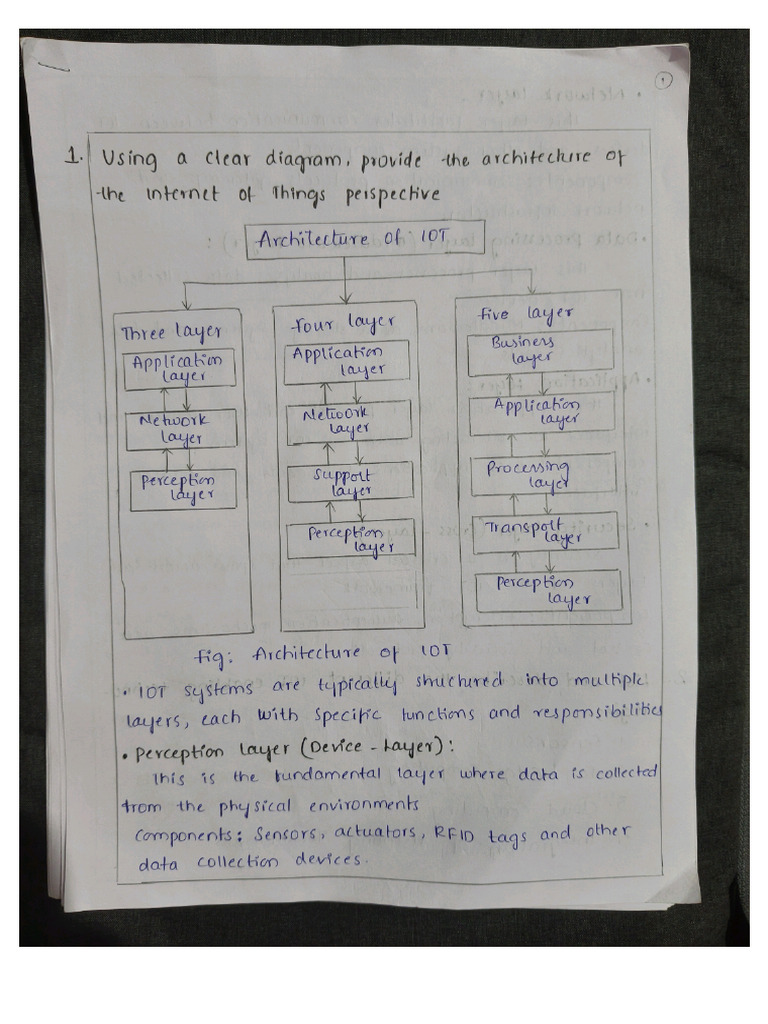 1
1. Using a clear diagram, provide the architecture of
the Internet of Things perspective
Architecture of IOT
Three layer
Application
layer
Network
layer
Perception
layer
Four layer
Application
layer
Network
layer
Support
layer
Perception
layer
Five layer
Business
layer
Application
layer
Processing
layer
Transport
layer
Perception
layer
Fig: Architecture of IOT
• IOT systems are typically structured into multiple
layers, each with specific functions and responsibilities
• Perception layer (Device-Layer):
This is the fundamental layer where data is collected
from the physical environments
Components: Sensors, actuators, RFID tags and other
data collection devices.